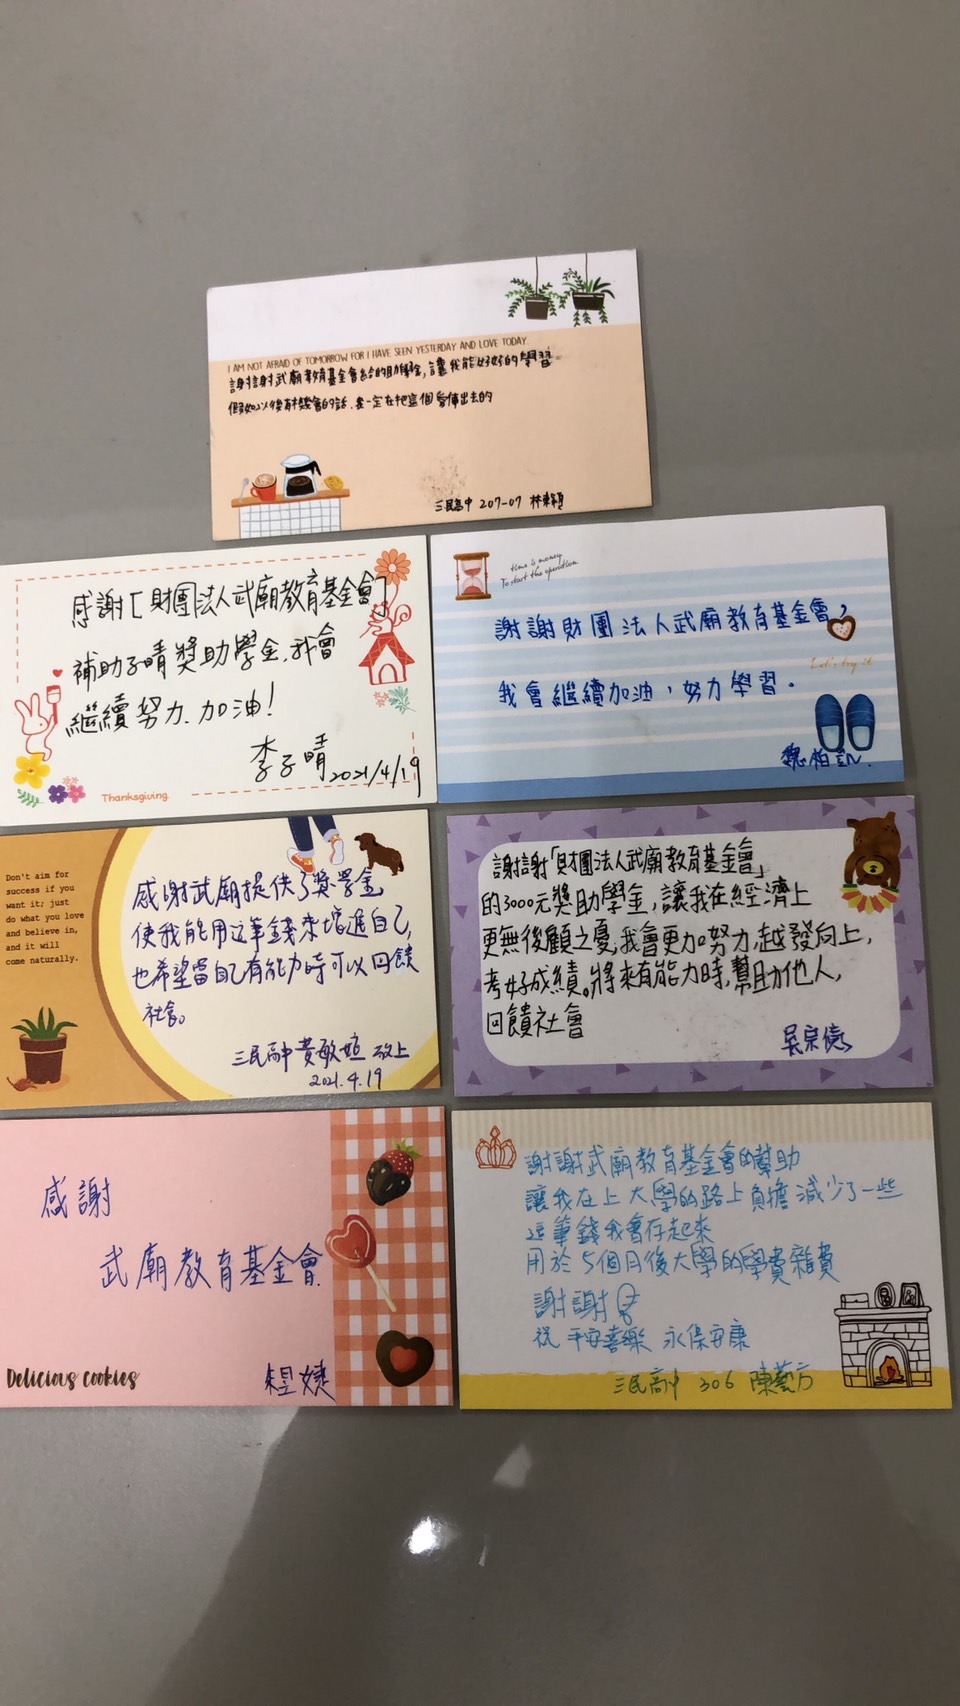 I AM NOT AFRAID OF TOMORROW FOR I HAVE SEEN YESTERDAY AND LOVE TODAY.
謝謝武廟教育基金會給的助學金,讓我能好好的學習
假如以後有機會的話,我一定在把這個愛傳出去的
三民高中 207-07 林
感謝[財團法人武廟教育基金會]
補助子晴獎助學金,我會
繼續努力、加油!
李子晴
2021/4/19
Thanksgiving
time is money
To start the operation
謝謝財團法人武廟教育基金會,
Let's try it
我會繼續加油,努力學習。
魏柏
Don't aim for
success if you
want it; just
do what you love
and believe in,
and it will
come naturally.
感謝武廟提供了獎學金
使我能用這筆錢來增進自己,
也希望當自己有能力時可以回饋
社會。
三民高中 黃敏 敬上
2021.4.19
謝謝「財團法人武廟教育基金會」
的3000元獎助學金,讓我在經濟上
更無後顧之憂,我會更加努力,越發向上,
考好成績。將來有能力時,幫助他人,
回饋社會
吳宗億
感謝
武廟教育基金會.
Delicious cookies
謝謝武廟教育基金會的幫助
讓我在上大學的路上負擔減少了一些
這筆錢我會存起來
用於5個月後大學的學費雜費
謝謝
祝 平安喜樂 永保安康
三民高中 306 陳藝方